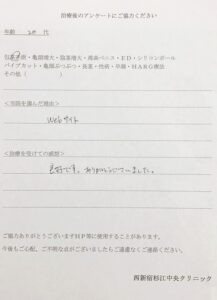 治療後のアンケートにご協力ください
年齢 20 代
包茎・亀頭増大・陰茎増大・埋没ペニス・ED・シリコンボール
パイプカット・亀頭ぶつぶつ・長茎・性病・早漏・HARG療法
その他( )
<当院を選んだ理由>
Webサイト
<治療を受けての感想>
良好です。ありがとうございました。
ご協力ありがとうございますHP等に使用することがあります。
今後もご心配、ご不明な点がございましたらご遠慮なくご連絡ください。
西新宿杉江中央クリニック